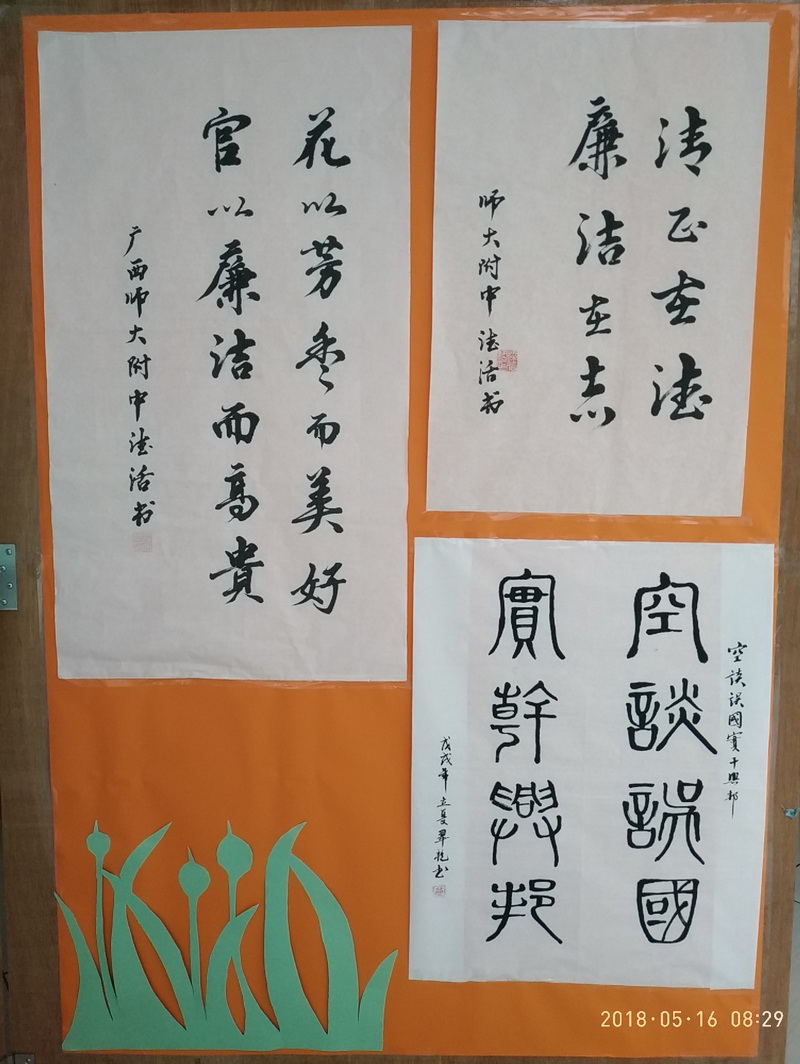 花以芳香而美好
官以廉洁而高貴
广西师大附中德活书
清正在德
廉洁在志
师大附中德活书
空谈误國實干興邦
空談誤國
實幹興邦
戊戌年立夏书
2018·05·16 08:29